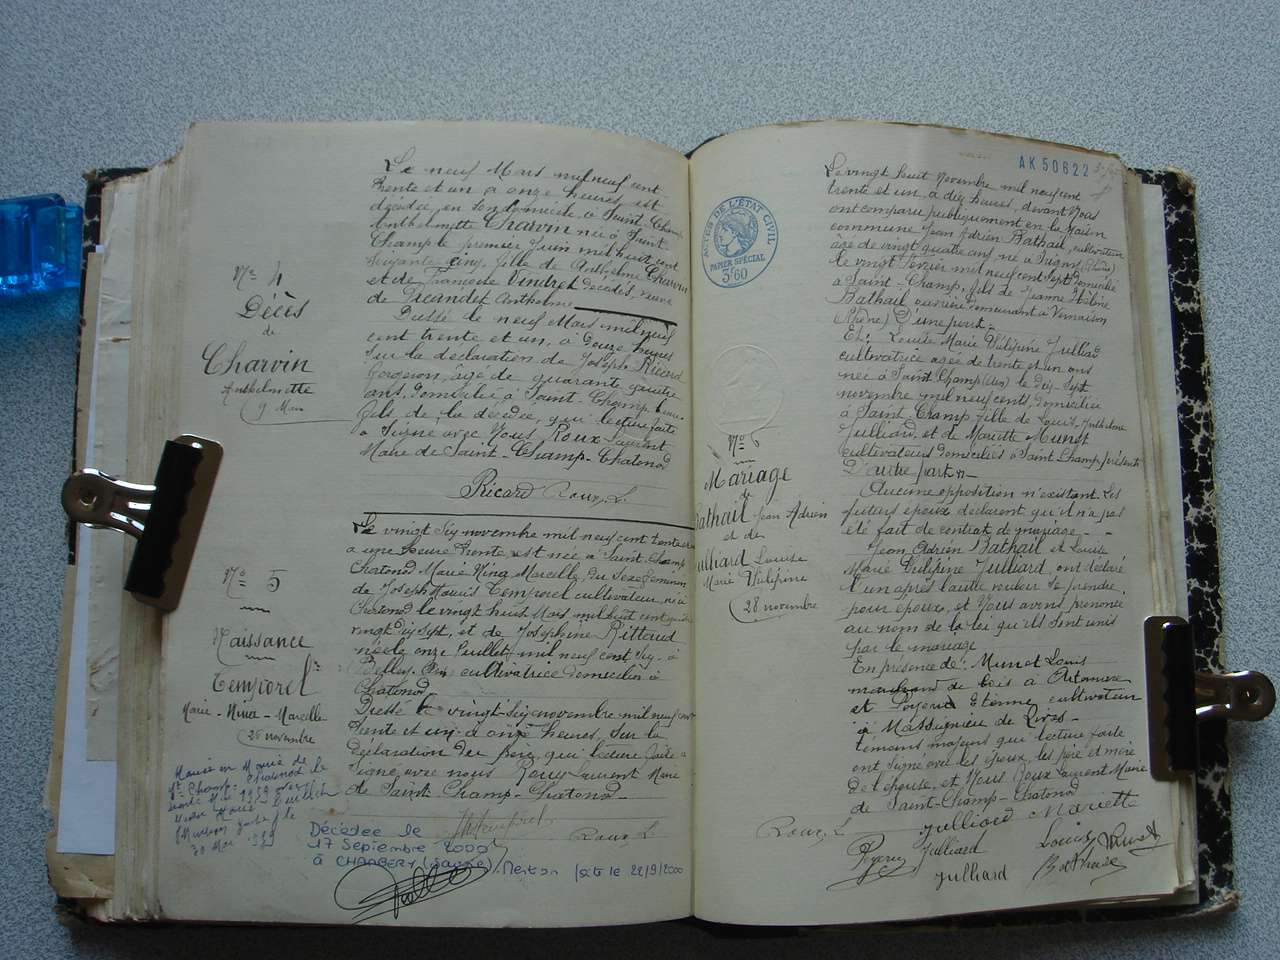 N° 4
Décès
de
Charvin
Anthelmette
9 Mars
Le neuf Mars mil neuf cent
trente et un à onze heures est
décédée, en son domicile à Saint-Champ
Anthelmette Charvin née à Saint
Champ le premier Juin mil huit cent
soixante cinq, fille de Anthelme Charvin
et de Françoise Vindret décédés, veuve
de Anthelme
Dressé le neuf Mars mil neuf
cent trente et un, à douze heures
sur la déclaration de Joseph Ricard
forgeron, âgé de quarante quatre
ans, domicilié à Saint-Champ, beau
fils de la décédée, qui lecture faite
a signé avec Nous Roux Laurent
Maire de Saint-Champ-Chatonod
Ricard Roux, L
N° 5
Naissance
Temporel
Marie-Nina-Marcelle
26 novembre
Le vingt six novembre mil neuf cent trente et un
à une heure trente est née à Saint Champ
Chatonod Marie Nina Marcelle, du sexe féminin
de Joseph Temporel cultivateur, né à
Chatonod le vingt huit Mars mil huit cent quatre
vingt dix sept, et de Joséphine Rittaud
née le onze Juillet mil neuf cent six à
Belley Ain cultivatrice domiciliés à
Chatonod
Dressé le vingt-six novembre mil neuf cent
trente et un à onze heures, sur la
déclaration du père, qui lecture faite a
signé avec nous Roux Laurent Maire
de Saint-Champ-Chatonod
Roux, L
Mariée en Mairie de
St Champ-Chatonod le
1959 avec
Mention faite le
30 Mai 1959
Décédée le
17 Septembre 2000
à CHAMBERY (Savoie) Mention faite le 22/9/2000
AK 50622
ACTES DE L'ÉTAT CIVIL
PAPIER SPÉCIAL
3F60
N° 6
Mariage
de
Bathail Jean Adrien
et de
Julliard Louise
Marie Philipine
28 novembre
Le vingt huit Novembre mil neuf cent
trente et un, à dix heures, devant Nous
ont comparu publiquement en la Maison
commune Jean Adrien Bathail, cultivateur
âgé de vingt quatre ans, né à Irigny (Rhône)
le vingt Février mil neuf cent sept domicilié
à Saint-Champ, fils de Jeanne Hélène
Bathail ouvrière demeurant à Vernaison
(Rhône) D'une part-
Et: Louise Marie Philipine Julliard
cultivatrice agée de trente et un ans
née à Saint Champ (Ain) le dix sept
novembre mil neuf cent, domiciliée
à Saint Champ fille de Louis Anthelme
Julliard, et de Mariette Munet
cultivateurs domiciliés à Saint Champ présents
D'autre part
Aucune opposition n'existant. Les
futurs époux déclarent qu'il n'a pas
été fait de contrat de mariage
Jean Adrien Bathail et Louise
Marie Philipine Julliard, ont déclaré
l'un après l'autre vouloir se prendre
pour époux, et Nous avons prononcé
au nom de la loi qu'ils sont unis
par le mariage
En présence de: Munet Louis
marchand de bois à Artemare
et Etienne cultivateur
à Massignieu de Rives-
témoins majeurs qui lecture faite
ont signé avec les époux, les père et mère
de l'épouse, et Nous Roux Laurent Maire
de Saint-Champ-Chatonod
Julliard Mariette
Roux, L Julliard Louis Munet
Julliard Bathail